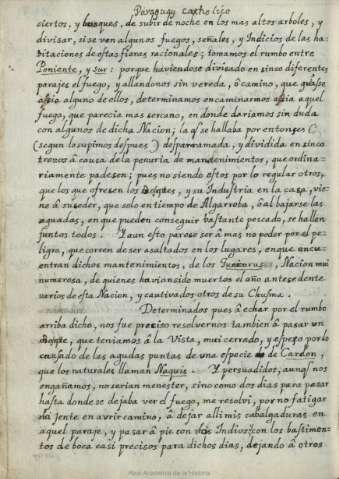 Paraguay Catholico
ciertos, y bosques, de subir de noche en los mas altos arboles, y
divisar, si se ven algunos fuegos, señales, y Indicios de las ha-
bitaciones de estas fieras racionales; tomamos el rumbo entre
Poniente, y Sur: porque haviendose divisado en sinco diferentes
parajes el fuego, y allandonos sin vereda, ô camino, que guiasse
asia alguno de ellos, determinamos encaminarnos asia aquel
fuego, que parecia mas sercano, en donde dariamos sin duda
con algunos de dicha Nacion; la qͤ se hallaba por entonses
(segun lo supimos despues) desparramada, y dividida en sinco
trosos â causa de la penuria de mantenimientos, que ordina-
riamente padesen; pues no siendo estos por lo regular otros,
que los que ofresen los Bosques, y su Industria en la casa, vie-
ne â suseder, que solo en tiempo de Algarroba, ô al bajarse las
aguadas, en que pueden conseguir bastante pescado, se hallen
juntos todos. Y aun esto parese ser â mas no poder por el pe-
ligro, que corren de ser asaltados en los lugares, en que encu-
entran dichos mantenimientos, de los Guaycurus, Nacion mui
numerosa, de quienes havian sido muertos el año antesedente
varios de esta Nacion, y cautivados otros de su Chusma.
Determinados pues â echar por el rumbo
arriba dicho, nos fue preciso resolvernos tambien â pasar un
Bosque, que teniamos â la Vista, mui cerrado, y espeso por lo
cruzado de las agudas puntas de una especie de Cardon,
que los naturales llaman Naquis. Y persuadidos, aunqͤ nos
engañamos, no serian menester, sino como dos dias para pasar
hasta donde se dejaba ver el fuego, me resolvi, por no fatigar
la jente en avrir camino, â dejar alli mis cabalgaduras en
aquel paraje, y pasar â pie con Indios con los bastimen-
tos de boca casi precisos para dichos dias, dejando â otros
Real Academia de la Historia